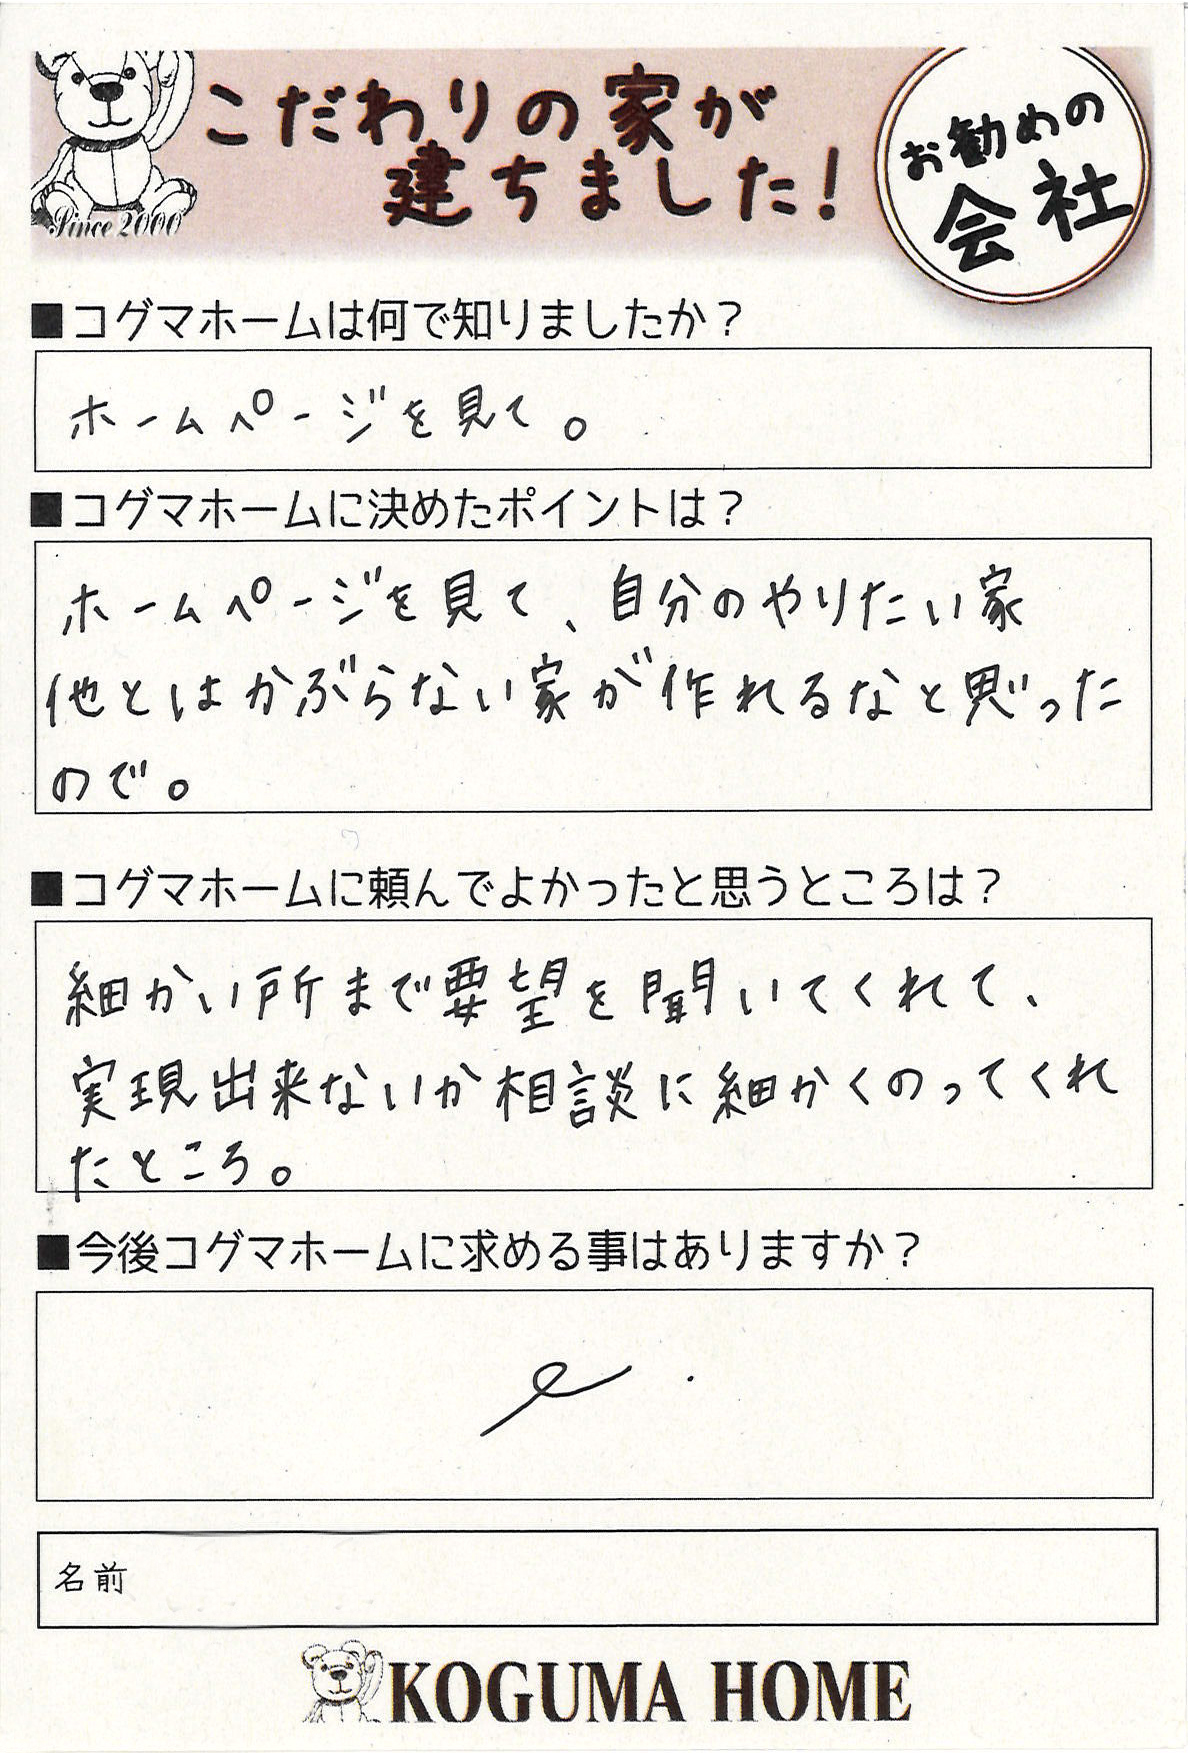 こだわりの家が
建ちました!
お勧めの
会社
Since 2000
■コグマホームは何で知りましたか?
ホームページを見て。
■コグマホームに決めたポイントは?
ホームページを見て、自分のやりたい家
他とはかぶらない家が作れるなと思った
ので。
■コグマホームに頼んでよかったと思うところは?
細かい所まで要望を聞いてくれて、
実現出来ないか相談に細かくのってくれ
たところ。
■今後コグマホームに求める事はありますか?
名前
KOGUMA HOME